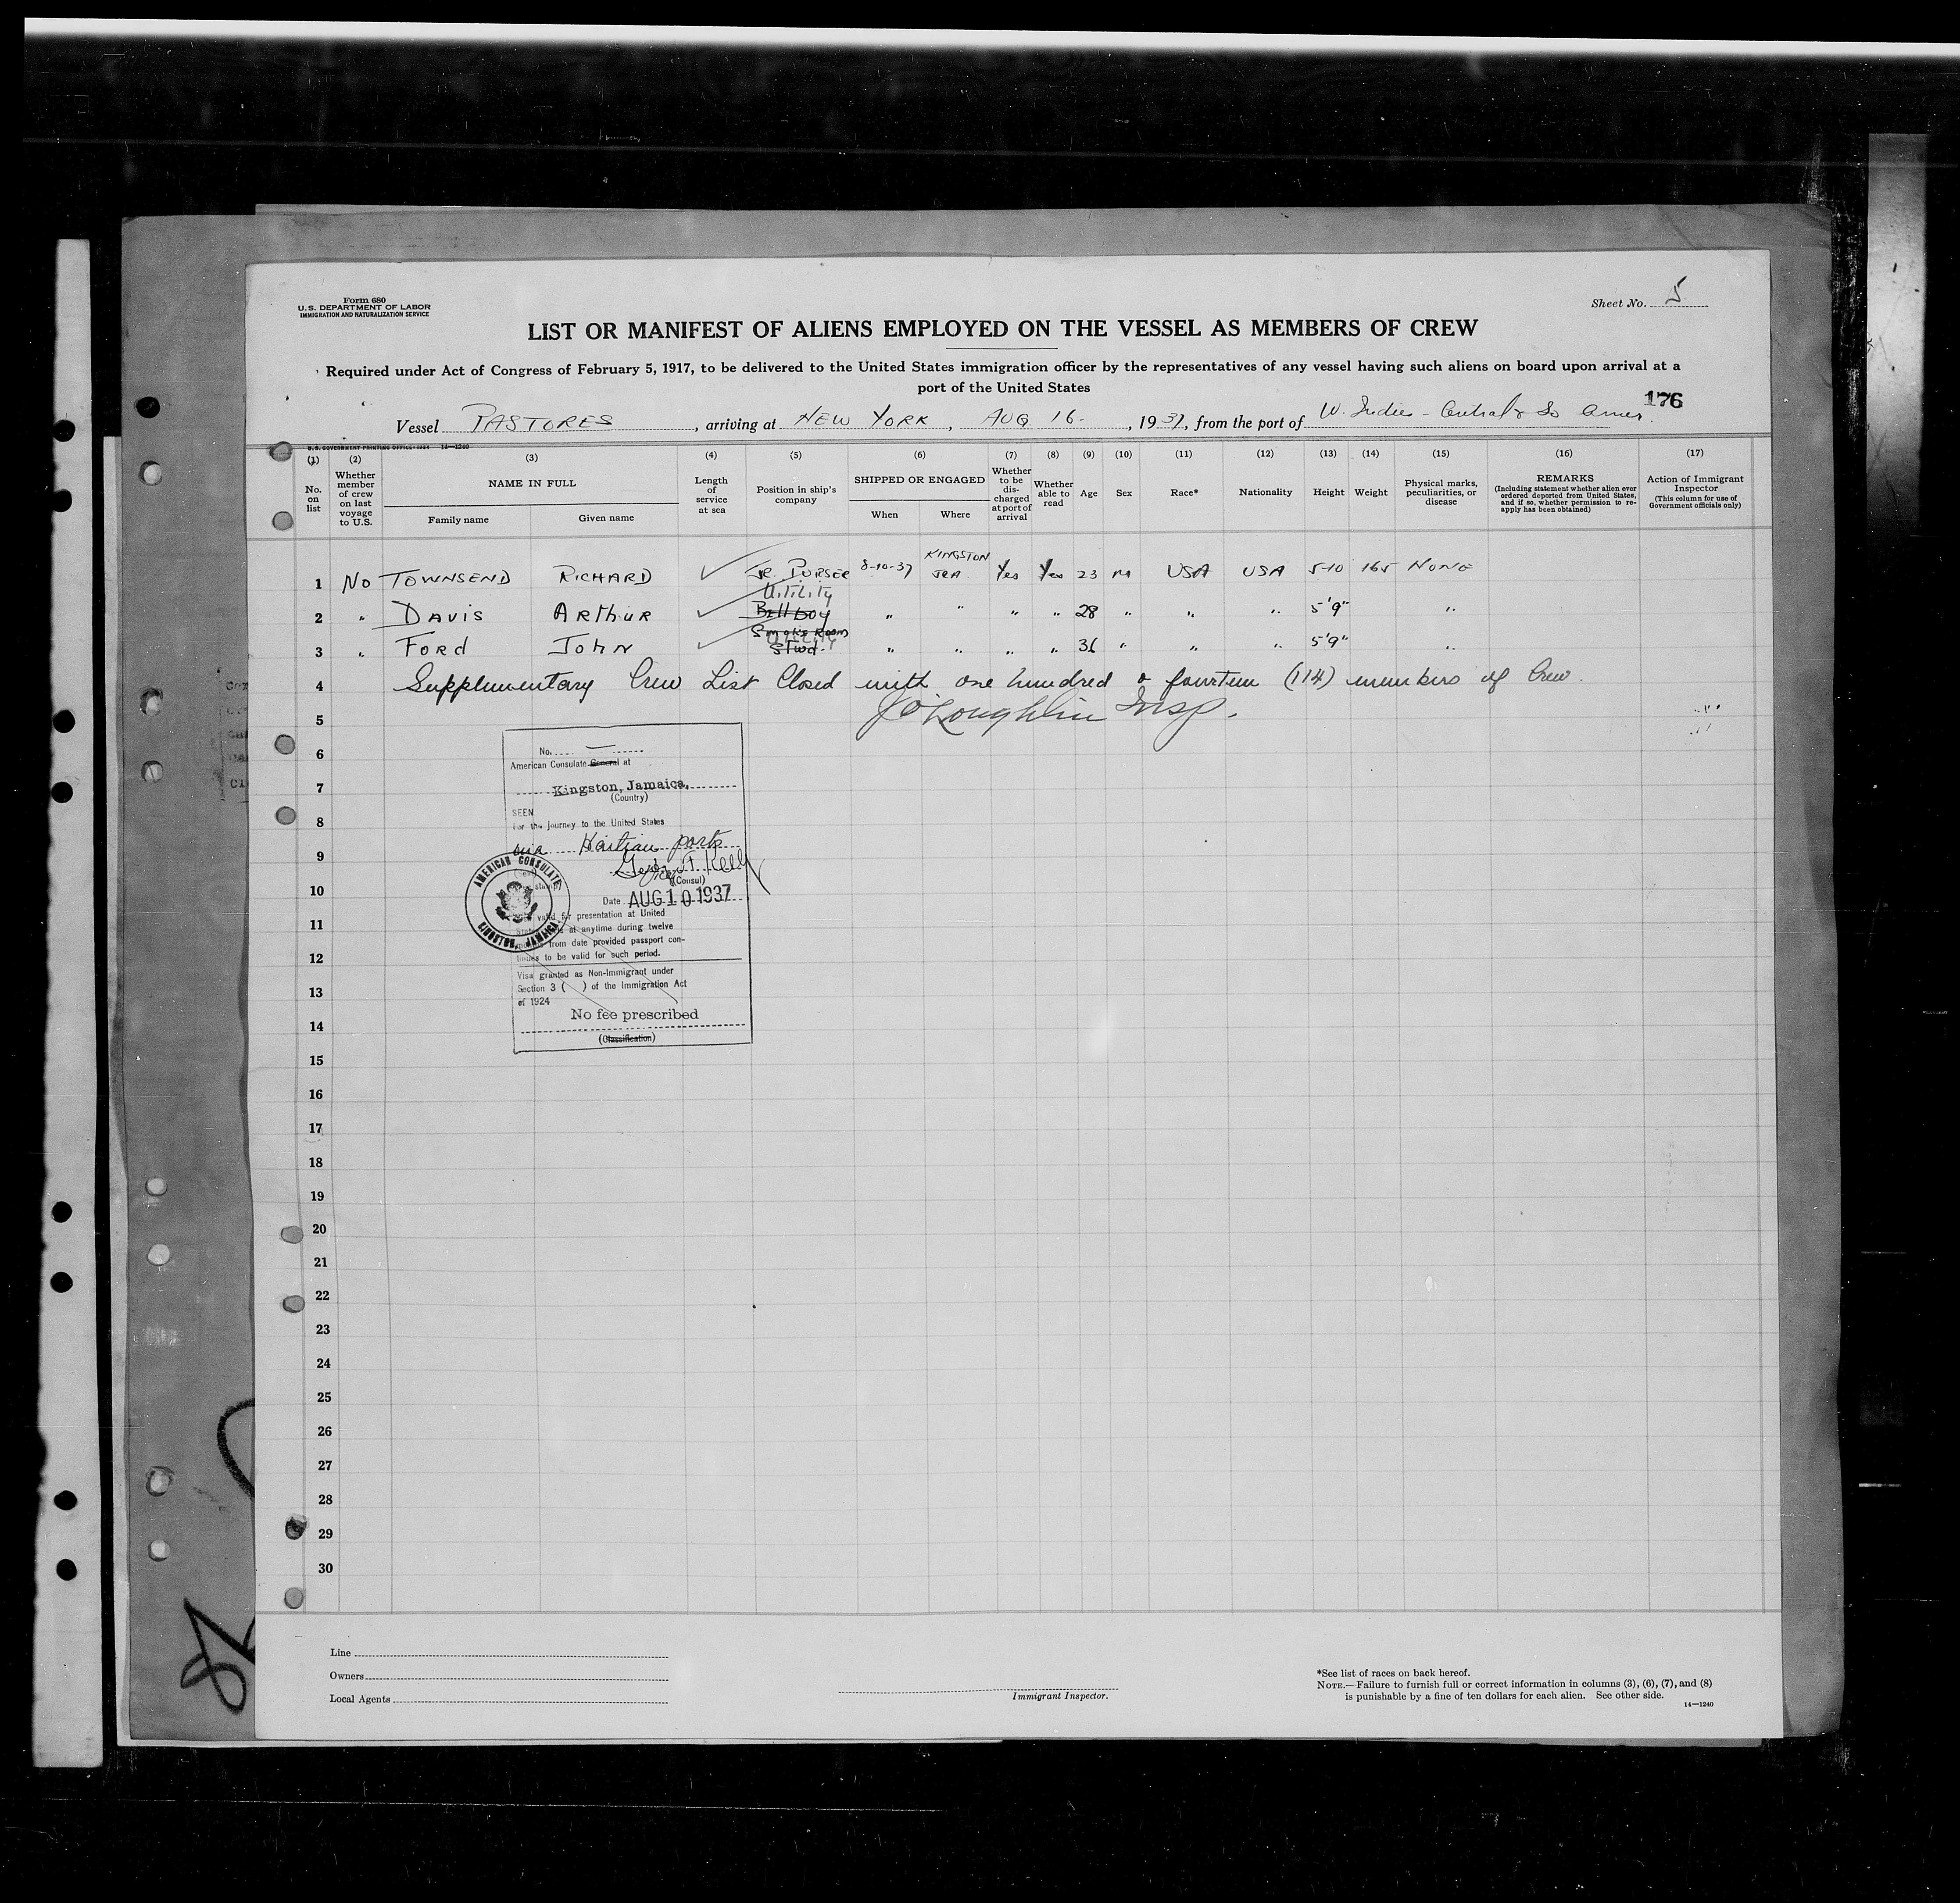 Form 680
U.S. DEPARTMENT OF LABOR
IMMIGRATION AND NATURALIZATION SERVICE
Sheet No. 5
LIST OR MANIFEST OF ALIENS EMPLOYED ON THE VESSEL AS MEMBERS OF CREW
Required under Act of Congress of February 5, 1917, to be delivered to the United States immigration officer by the representatives of any vessel having such aliens on board upon arrival at a
port of the United States
176
Vessel PASTORES, arriving at NEW YORK, AUG 16-, 1937, from the port of W. Indies - Central & So Amer.
U.S. GOVERNMENT PRINTING OFFICE: 1934 14—1240
(1) No. on list
(2) Whether member of crew on last voyage to U.S.
(3) NAME IN FULL Family name Given name
(4) Length of service at sea
(5) Position in ship's company
(6) SHIPPED OR ENGAGED When Where
(7) Whether to be discharged at port of arrival
(8) Whether able to read
(9) Age
(10) Sex
(11) Race*
(12) Nationality
(13) Height
(14) Weight
(15) Physical marks, peculiarities, or disease
(16) REMARKS (Including statement whether alien ever ordered deported from United States, and if so, whether permission to reapply has been obtained)
(17) Action of Immigrant Inspector (This column for use of Government officials only)
1 No TOWNSEND RICHARD JR. PURSER 8-10-37 KINGSTON JRA Yes Yes 23 M USA USA 5-10 165 NONE
2 " DAVIS ARTHUR Utility Bell boy " " " " 28 " " " 5'9" "
3 " FORD JOHN Smoke Room Stwd. " " " " 36 " " " 5'9" "
4 Supplimentary Crew List Closed with one hundred & fourteen (114) members of Crew.
5 J O'Loughlin Insp.
6
7
8
9
10
11
12
13
14
15
16
17
18
19
20
21
22
23
24
25
26
27
28
29
30
No. —
American Consulate General at
Kingston, Jamaica,
(Country)
SEEN
For the journey to the United States
via Haitian ports
(Consul)
Date AUG 10 1937
AMERICAN CONSULATE
KINGSTON, JAMAICA
valid for presentation at United
States at anytime during twelve
months from date provided passport con-
tinues to be valid for such period.
Visa granted as Non-Immigrant under
Section 3 ( ) of the Immigration Act
of 1924
No fee prescribed
(Classification)
Line
Owners
Local Agents
Immigrant Inspector.
*See list of races on back hereof.
NOTE.—Failure to furnish full or correct information in columns (3), (6), (7), and (8)
is punishable by a fine of ten dollars for each alien. See other side.
14—1240